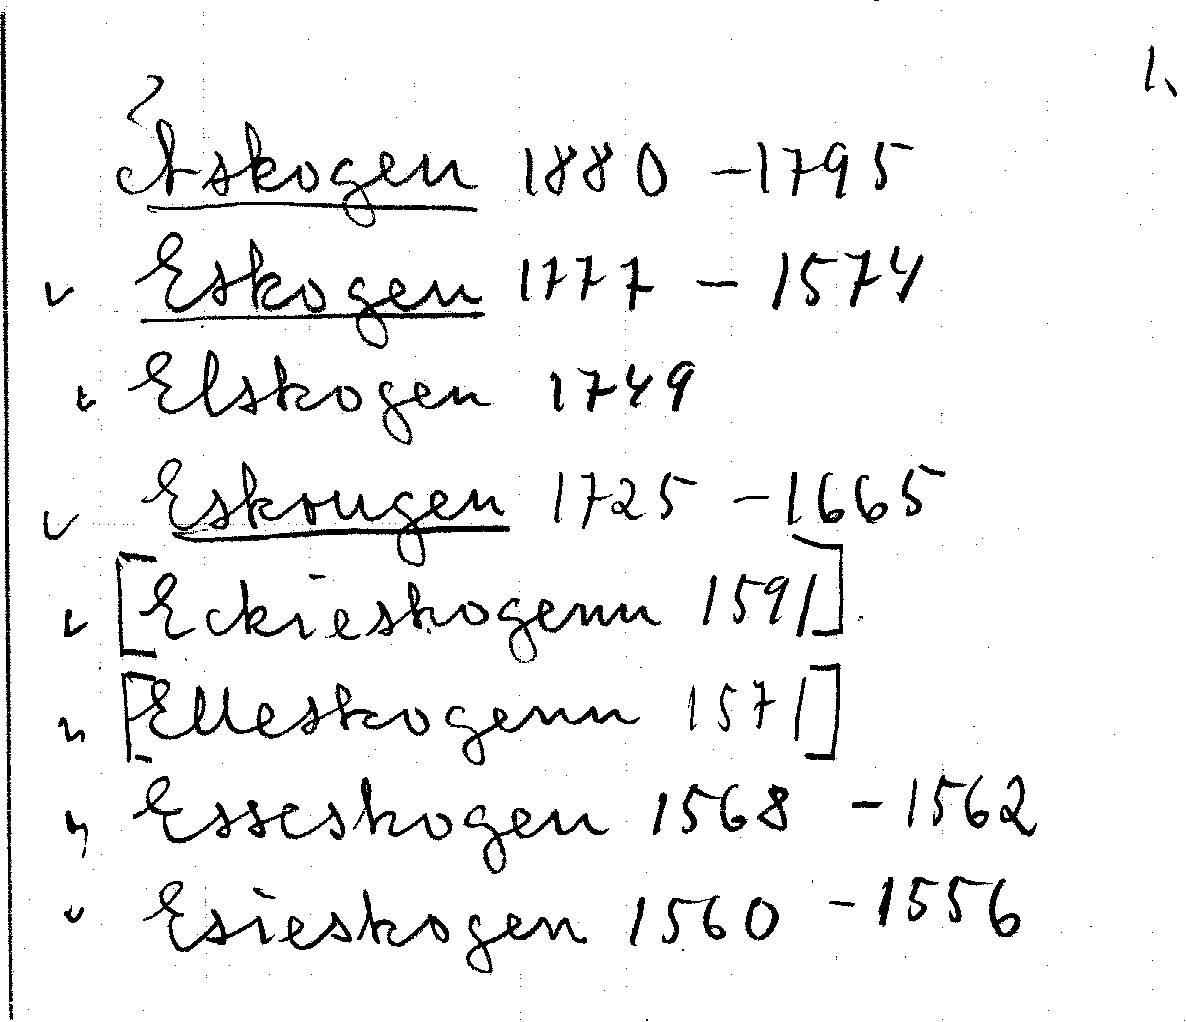 1.
Åskogen 1880 - 1795
v Eskogen 1777 - 1574
v Elskogen 1749
v Eskougen 1725 - 1665
v [Eckieskogenn 1591]
v [Elleskogenn 1571]
v Esseskogen 1568 - 1562
v Esieskogen 1560 - 1556